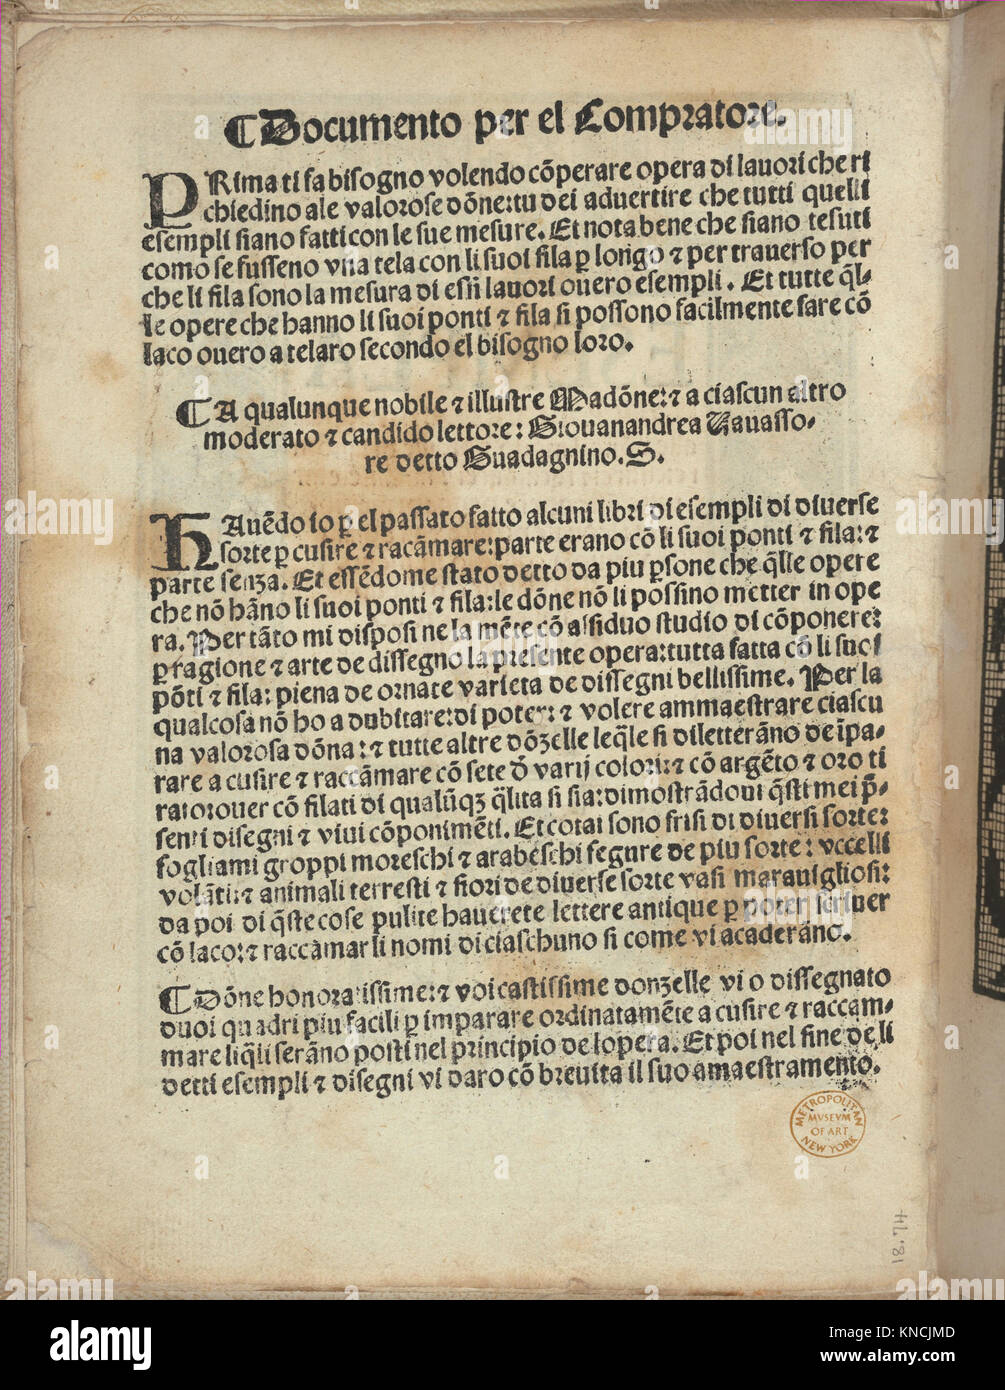 ¶Documento per el Compratore.
PRima ti fa bisogno volendo cōperare opera di lauori che ri
chiedino a le valorose dōne: tu dei aduertire che tutti quelli
esempli siano fatti con le sue mesure. Et nota bene che siano tesuti
como se fusseno vna tela con li suoi fila ꝑ longo ⁊ per trauerso per
che li fila sono la mesura di essi lauori ouero esempli. Et tutte q̄l-
le opere che hanno li suoi ponti ⁊ fila si possono facilmente fare cō
laco ouero a telaro secondo el bisogno loro.
¶A qualunque nobile ⁊ illustre Madōne: ⁊ a ciascun altro
moderato ⁊ candido lettore: Giouanandrea Vauasso-
re detto Guadagnino. S.
HAuēdo io ꝑ el passato fatto alcuni libri di esempli di diuerse
sorte ꝑ cusire ⁊ racāmare: parte erano cō li suoi ponti ⁊ fila: ⁊
parte senza. Et essēdome stato detto da piu ꝑsone che q̄lle opere
che nō hāno li suoi ponti ⁊ fila: le dōne nō li possino metter in ope
ra. Per tāto mi disposi ne la mēte cō assiduo studio di cōponere:
ꝑ ragione ⁊ arte de dissegno la presente opera: tutta fatta cō li suoi
pōti ⁊ fila: piena de ornate varieta de dissegni bellissime. Per la
qualcosa nō ho a dubitare: di poter: ⁊ volere ammaestrare ciascu
na valorosa dōna: ⁊ tutte altre dōzelle leq̄le si diletterāno de īpa-
rare a cusire ⁊ raccāmare cō sete d̄ varij colori: ⁊ cō argēto ⁊ oro ti
rato: ouer cō filati di qualūqꝫ q̄lita si sia: dimostrādoui q̄sti mei p̄-
senti disegni ⁊ viui cōponimēti. Et cotai sono frisi di diuersi sorte:
fogliami groppi moreschi ⁊ arabeschi fegure de piu sorte: vccelli
volāti: ⁊ animali terresti ⁊ fiori de diuerse sorte vasi marauigliosi:
da poi di q̄ste cose pulite hauerete lettere antique ꝑ poter scriuer
cō laco: ⁊ raccāmar li nomi di ciaschuno si come vi acaderāno.
¶Dōne honoratissime: ⁊ voi castissime donzelle vi o dissegnato
duoi quadri piu facili ꝑ imparare ordinatamēte a cusire ⁊ raccam-
mare liq̄li serāno posti nel principio de lopera. Et poi nel fine de li
detti esempli ⁊ disegni vi daro cō breuita il suo amaestramento.
METROPOLITAN
MVSEVM
OF ART
NEW YORK
18.74
alamy
Image ID: KNCJMD
www.alamy.com